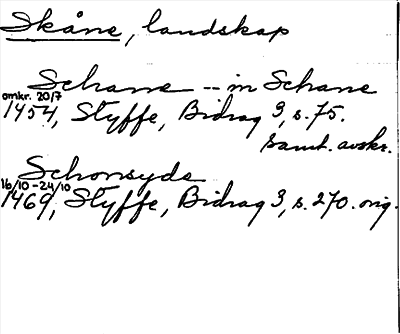 Skåne, landskap
Schane -- in Schane
omkr. 20/7
1454, Styffe, Bidrag 3, s. 75.
samt. avskr.
Schonsyde
16/10-24/10
1469, Styffe, Bidrag 3, s. 270. orig.